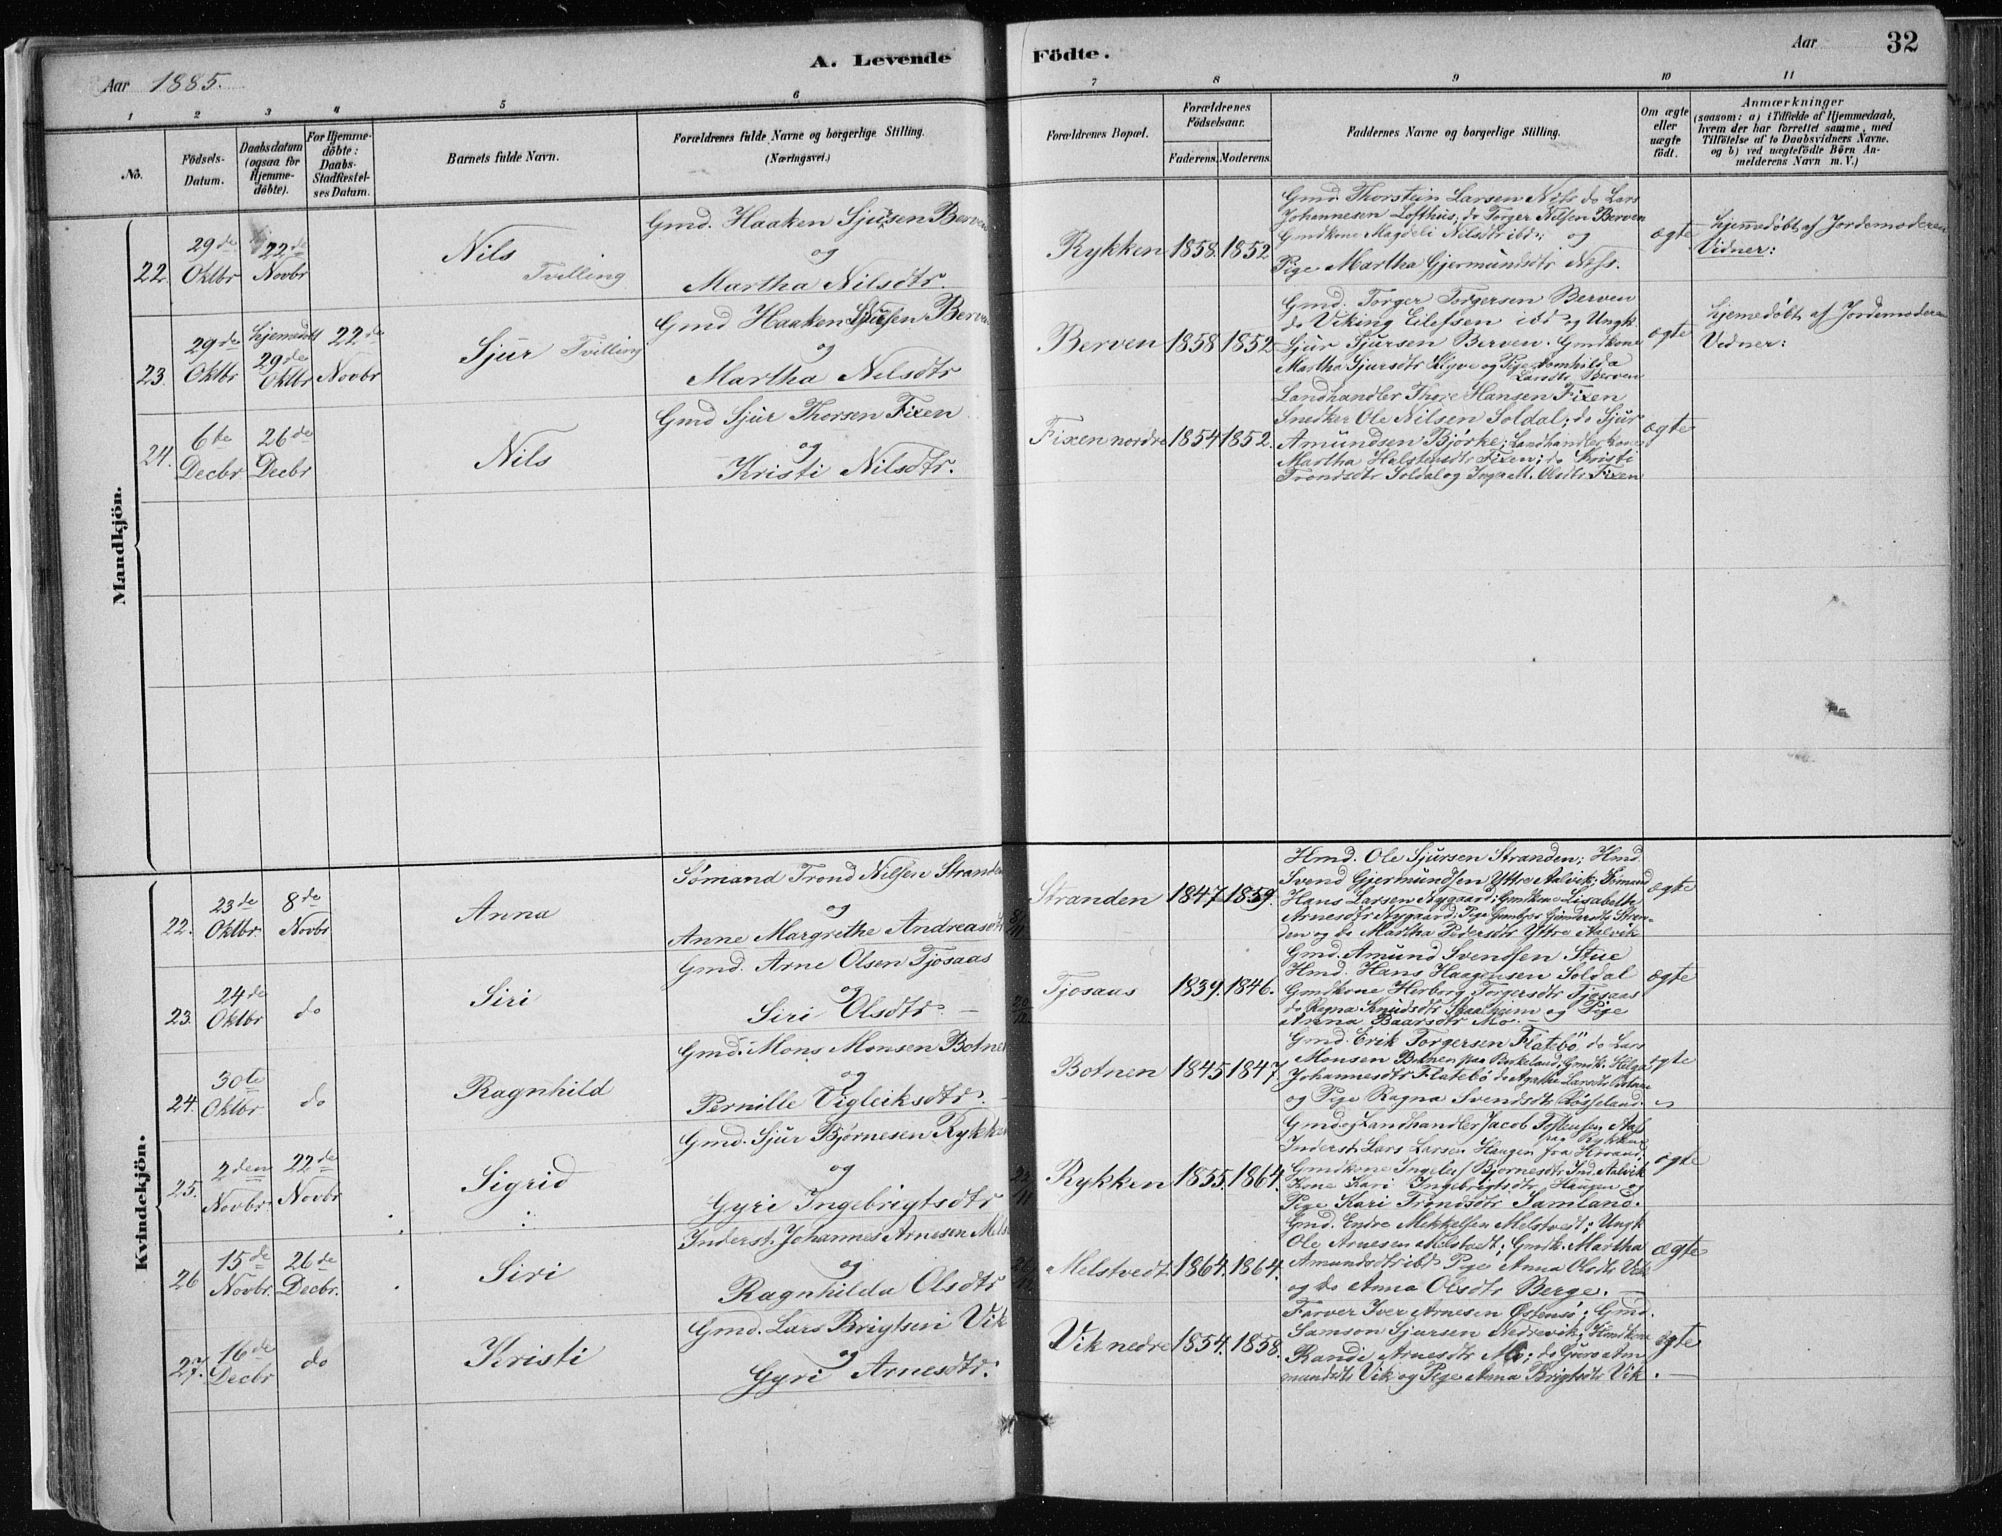 A. Levende Födte.
Aar 1885.
Aar 32
1 2 3 4 5 6 7 8 9 10 11
No.
Födsels-
Datum.
Daabsdatum
(ogsaa for
Hjemme-
döbte).
For Hjemme-
döbte:
Daabs-
Stadfæstel-
ses Datum.
Barnets fulde Navn.
Forældrenes fulde Navne og borgerlige Stilling.
(Næringsvei.)
Forældrenes Bopæl.
Forældrenes
Födselsaar.
Faderens. Moderens.
Faddernes Navne og borgerlige Stilling.
Om ægte
eller
uægte
födt.
Anmærkninger
(saasom: a) i Tilfælde af Hjemmedaab,
hvem der har forrettet samme, med
Tilföielse af to Daabsvidners Navne,
og b) ved uægtefödte Börn An-
melderens Navn m. V.)
Mandkjön.
22. 29de Oktbr 22de Novbr
Nils
Tvilling
Gmd. Haaken Sjursen Berven
og
Martha Nilsdtr.
Rykken 1858. 1852
Gmd. Thorstein Larsen Nes do Lars
Johannesen Lofthus, do Torger Nilsen Berven
Gmdkone Magdeli Nilsdtr ibd; og
Pige Martha Gjermundsdtr Ness.
ægte
Hjemmedøbt af Jordemoderen
Vidner:
23. 29de Oktbr Hjemmedøbt 29de Oktbr 22de Novbr
Sjur Tvilling
Gmd Haaken Sjursen Berven
og
Martha Nilsdtr
Berven 1858 1852
Gmd. Torger Torgersen Berven
do Viking Eilefsen ibd og Ungk.
Sjur Sjursen Berven. Gmdkone
Martha Sjursdtr og Pige
Larsdtr Berven
ægte
Hjemedøbt af Jordemoderen
Vidner:
24. 6de Decbr 26de Decbr
Nils
Gmd Sjur Thorsen Fixen
og
Kristi Nilsdtr.
Fixen nordre 1854 1852.
Landhandler Thore Hansen Fixen
Snedker Ole Nilsen Soldal; do Sjur
Amundsen Bjørke; Landhandler kone
Martha Halstensdtr Fixen; do Kristi
Trondsdtr Soldal og Inga M. Olsdtr Fixen
ægte
Kvindekjön.
22. 23de Oktbr. 8de Novbr
Anna
Sømand Trond Nilsen Stranden
og
Anne Margrethe Andreasdtr
8/11
Stranden 1847 1859.
Hmd. Ole Sjursen Stranden; Hmd.
Svend Gjermundsen Yttre Aalvik; Sømand
Hans Larsen Nygaard; Gmdkone Lisabetha
Arnesdtr Nygaard; Pige Stran-
den og do Martha Pedersdtr Yttre Aalvik
ægte
23. 24de Oktbr do
Siri
Gmd. Arne Olsen Tjosaas
og
Siri Olsdtr. –
Tjosaas 1839. 1846.
Gmd. Amund Svendsen Stue
Hmd. Hans Haagensen Soldal
Gmdkone Herborg Torgersdtr Tjosaas
do Ragna Knudsdtr Skaalheim og Pige
Anna Baarsdtr Mo. –
ægte
24. 30te Oktbr. do
Ragnhild
Gmd. Mons Monsen Botnen
og
Pernille Vigleiksdtr. –
Botnen 1845 1847.
Gmd. Erik Torgersen Flatebø do Lars
Monsen Botnen paa Birkeland; Gmdk. Helga
Johannesdtr Flatebø do Agatha Larsdtr Botnen
og Pige Ragna Svendsdtr
ægte
25. 2den Novbr. 22de Novbr
Sigrid
Gmd. Sjur Bjørnesen Rykken
og
Gyri Ingebrigtsdtr
Rykken 1855. 1864.
Gmd og Landhandler Jacob Tostensen Aas
paa Rykken
Inderst Lars Larsen Haugen fra
Gmdkone Bjørnesdtr Ind. Aalvik
Kone Kari Ingebrigtsdtr Haugen og
Pige Kari Trondsdtr Samland.
ægte
26 15de Novbr. 26de Decbr.
Siri
Inderst. Johannes Arnesen
og
Ragnhilda Olsdtr
Melstvedt 1864. 1864.
Gmd. Endre Mekkelsen Melstvedt; Ungk
Ole Arnesen Melstvedt; Gmdk. Martha
Amundsdtr ibd Pige Anna Olsdtr Vik
og do Anna Olsdtr Berge. –
ægte
27. 16de Decbr do
Kristi
Gmd. Lars Brigtsen Vik
og
Gyri Arnesdtr.
Vik nedre 1854. 1858.
Farver Iver Arnesen Østensø; Gmd.
Samson Sjursen Nedrevik; Hmdkone
Randi Arnesdtr Mo; do Guro Am
mundsdtr Vik og Pige Anna Brigtsdtr Vik. –
ægte